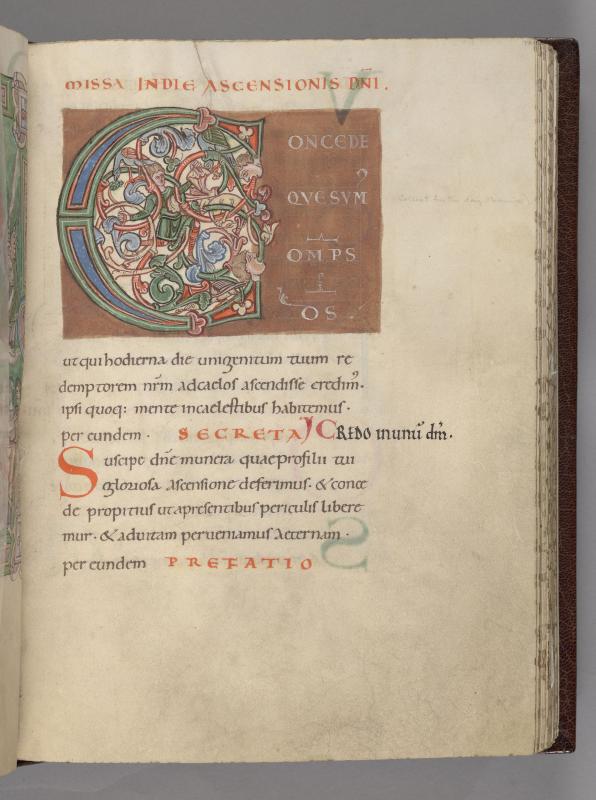 MISSA IN DIE ASCENSIONIS DN̄I.
C ONCEDE
QVESVMꝰ
OMPS
OS
ut qui hodierna die unigenitum tuum re
demptorem nr̄m ad caelos ascendisse credimꝰ.
ipsi quoq: mente in caelestibus habitemus.
per eundem. SECRETA CREDO in unū dm̄.
Suscipe dn̄e munera quae pro filii tui
gloriosa ascensione deferimus. & conce
de propitius ut a presentibus periculis libere
mur. & ad vitam perveniamus aeternam.
per eundem PREFATIO